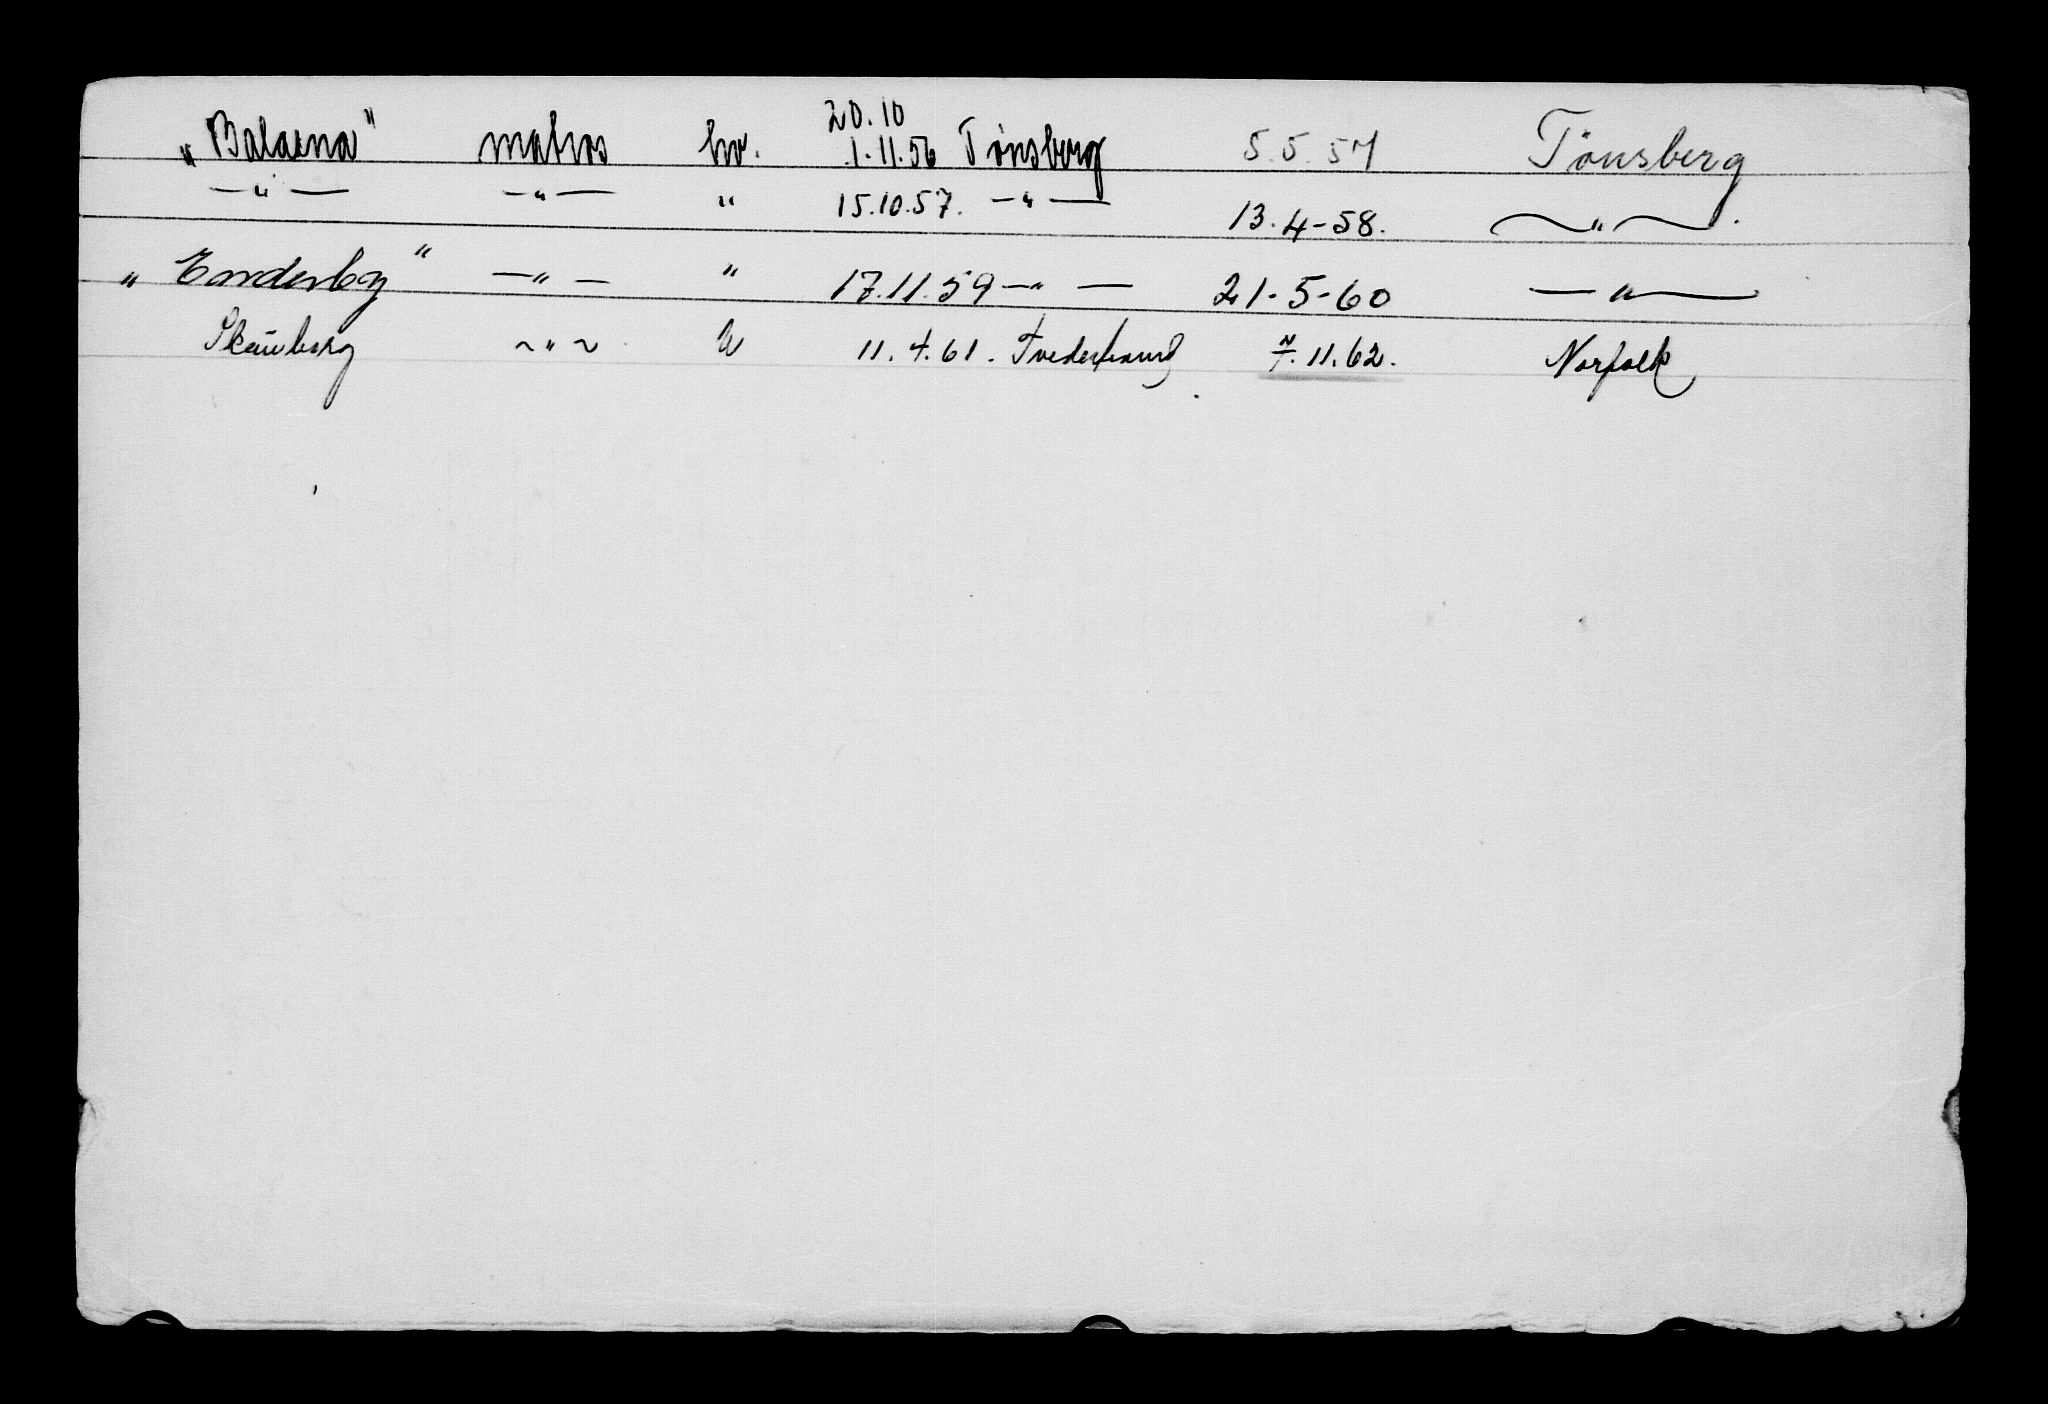 20.10
"Balaena" matros hv. 1.11.56 Tønsberg 5.5.57 Tønsberg
—"— —"— " 15.10.57. —"— 13.4-58. —"—.
"Enderby" —"— " 17.11.59 —"— 21-5-60 —"—
Skauberg ~"~ u 11.4.61. Tvedestrand 7.11.62. Norfolk